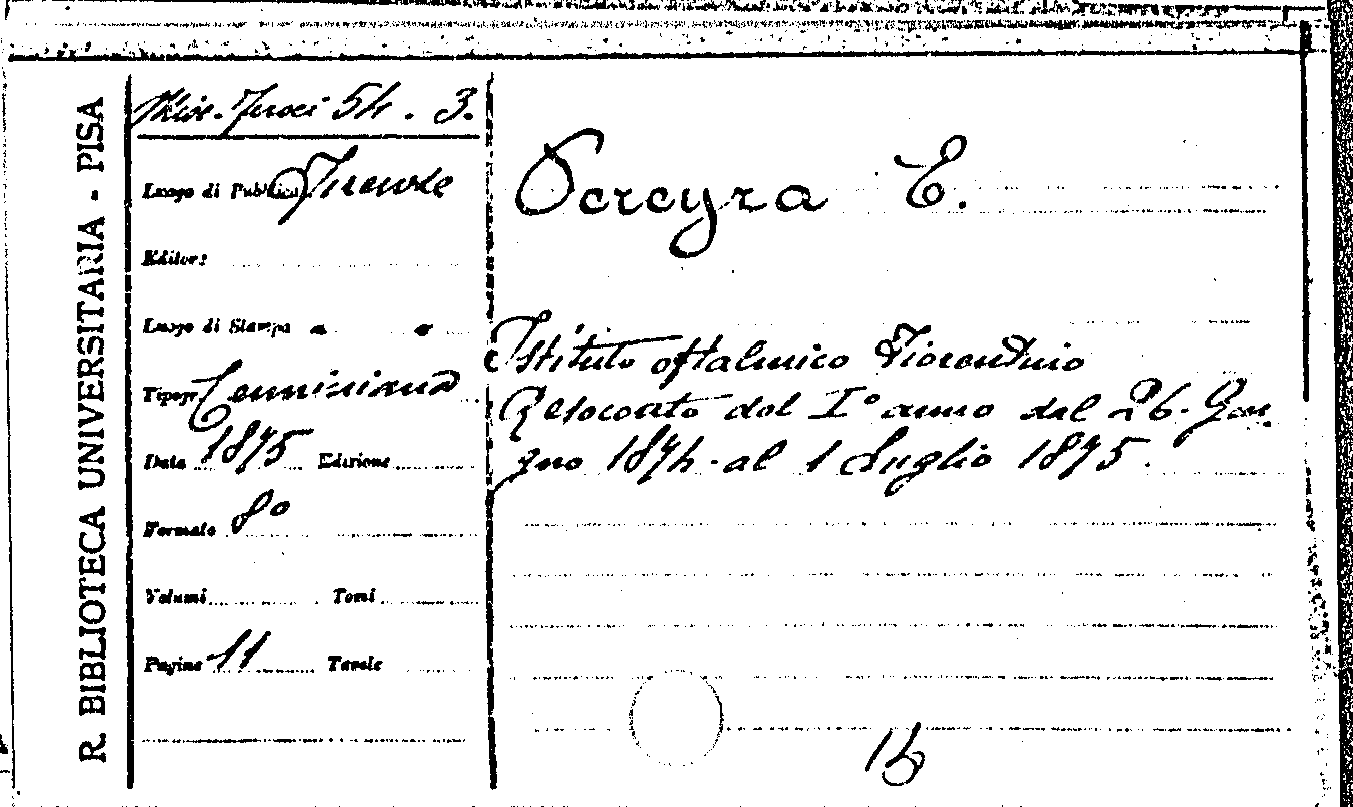 R. BIBLIOTECA UNIVERSITARIA - PISA
Misc. Feroci 54. 3.
Luogo di Pubblicaz. Firenze
Editore
Luogo di Stampa " "
Tipogr. Cenniniana
Data 1875 Edizione
Formato 8°
Volumi Tomi
Pagine 11 Tavole
Pereyra E.
Istituto oftalmico Fiorentino
Resoconto del I° anno dal 26. Giu-
gno 1874. al 1 Luglio 1875.